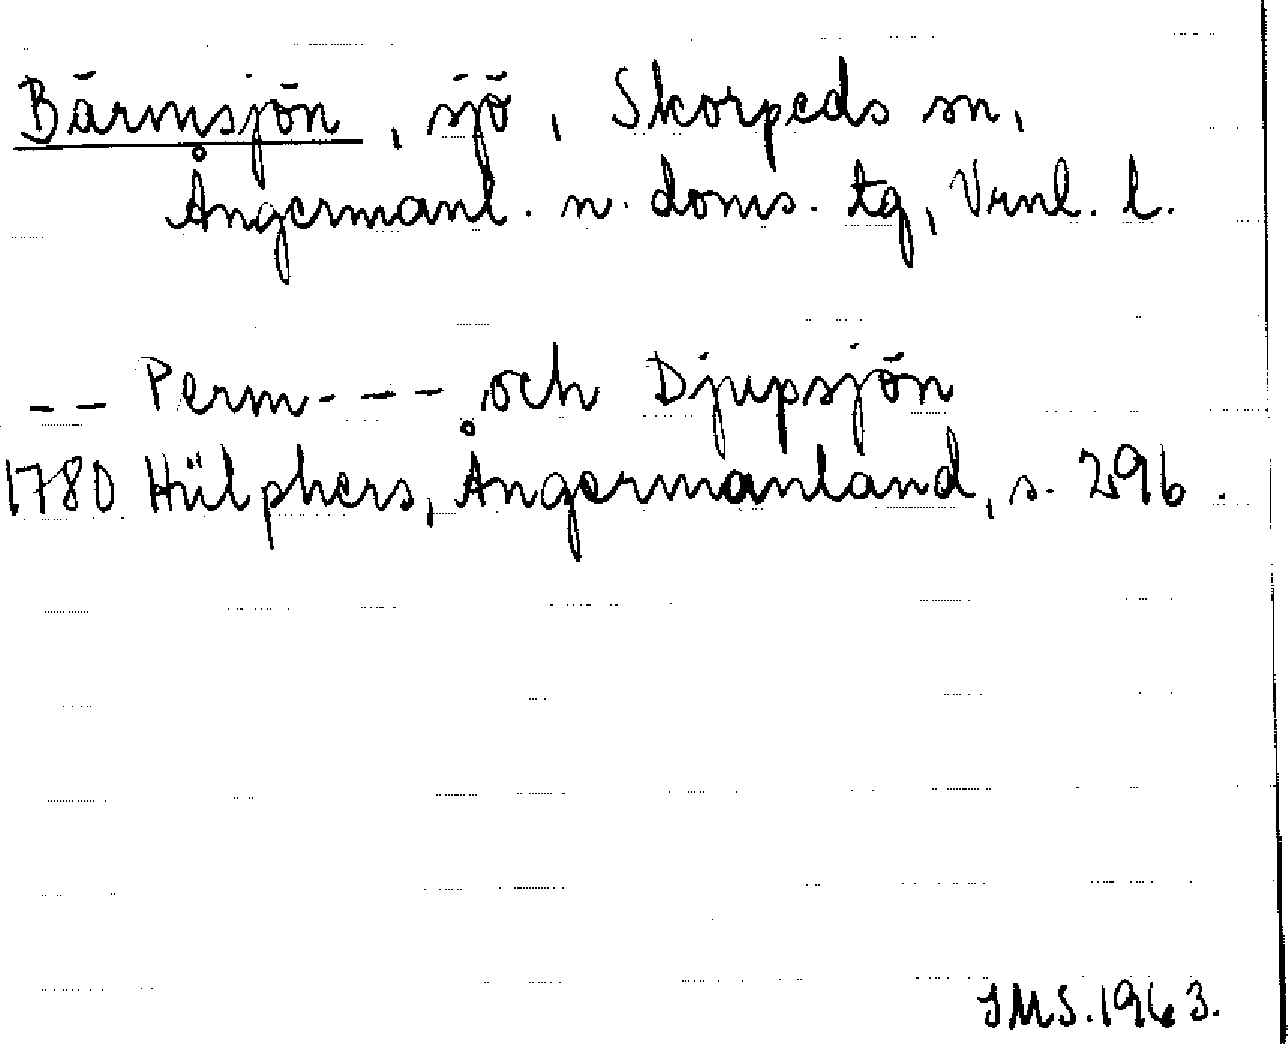 Bärmsjön, sjö, Skorpeds sn,
Ångermanl. n. doms. tg, Vrnl. l.
-- Perm--- och Djupsjön
1780 Hülphers, Ångermanland, s. 296.
IMS. 1963.